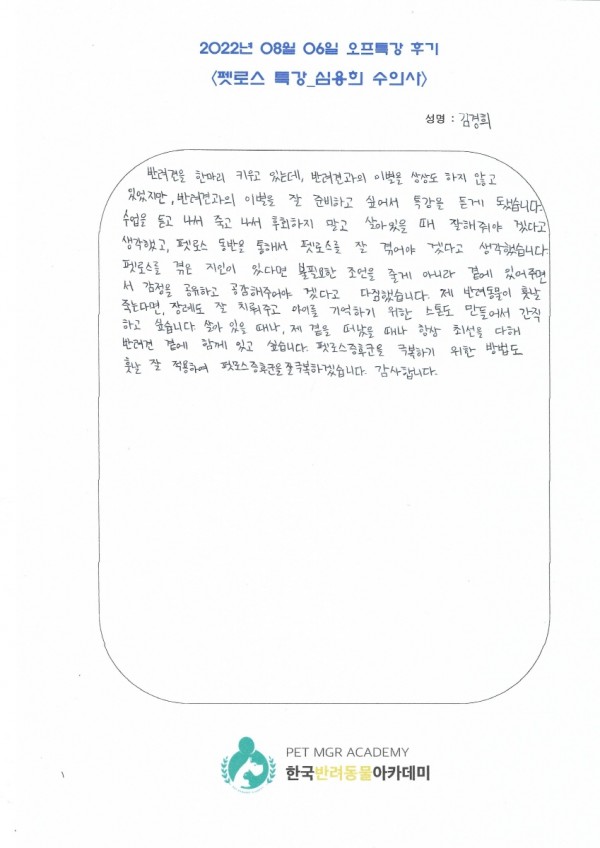 2022년 08월 06일 오프특강 후기
<펫로스 특강_심용희 수의사>
성명 : 김경희
반려견을 한마리 키우고 있는데, 반려견과의 이별을 상상도 하지 않고
있었지만, 반려견과의 이별을 잘 준비하고 싶어서 특강을 듣게 되었습니다.
수업을 듣고 나서 죽고 나서 후회하지 말고 살아있을 때 잘해줘야 겠다고
생각했고, 펫로스 동반을 통해서 펫로스를 잘 겪어야 겠다고 생각했습니다.
펫로스를 겪은 지인이 있다면 불필요한 조언을 줄게 아니라 곁에 있어주면
서 감정을 공유하고 공감해주어야 겠다고 다짐했습니다. 제 반려동물이 훗날
죽는다면, 장례도 잘 치뤄주고 아이를 기억하기 위한 스톤도 만들어서 간직
하고 싶습니다 살아 있을 때나, 제 곁을 떠났을 때나 항상 최선을 다해
반려견 곁에 함께 있고 싶습니다. 펫로스증후군을 극복하기 위한 방법도
훗날 잘 적용하여 펫로스증후군을 잘 극복하겠습니다. 감사합니다.
PET MGR ACADEMY
한국반려동물아카데미